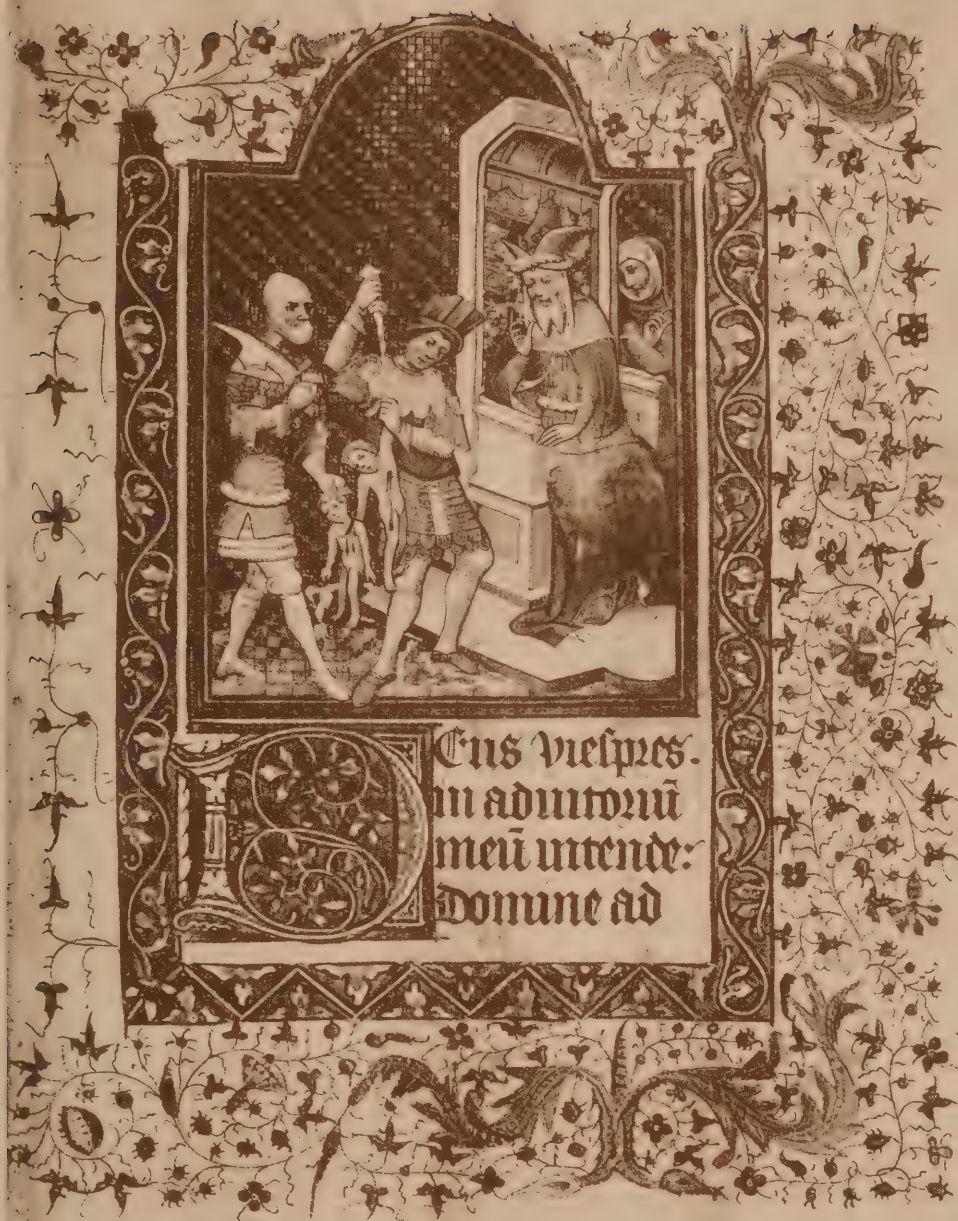 DEus viespres.
in adiutoriū
meū intende:
Domine ad